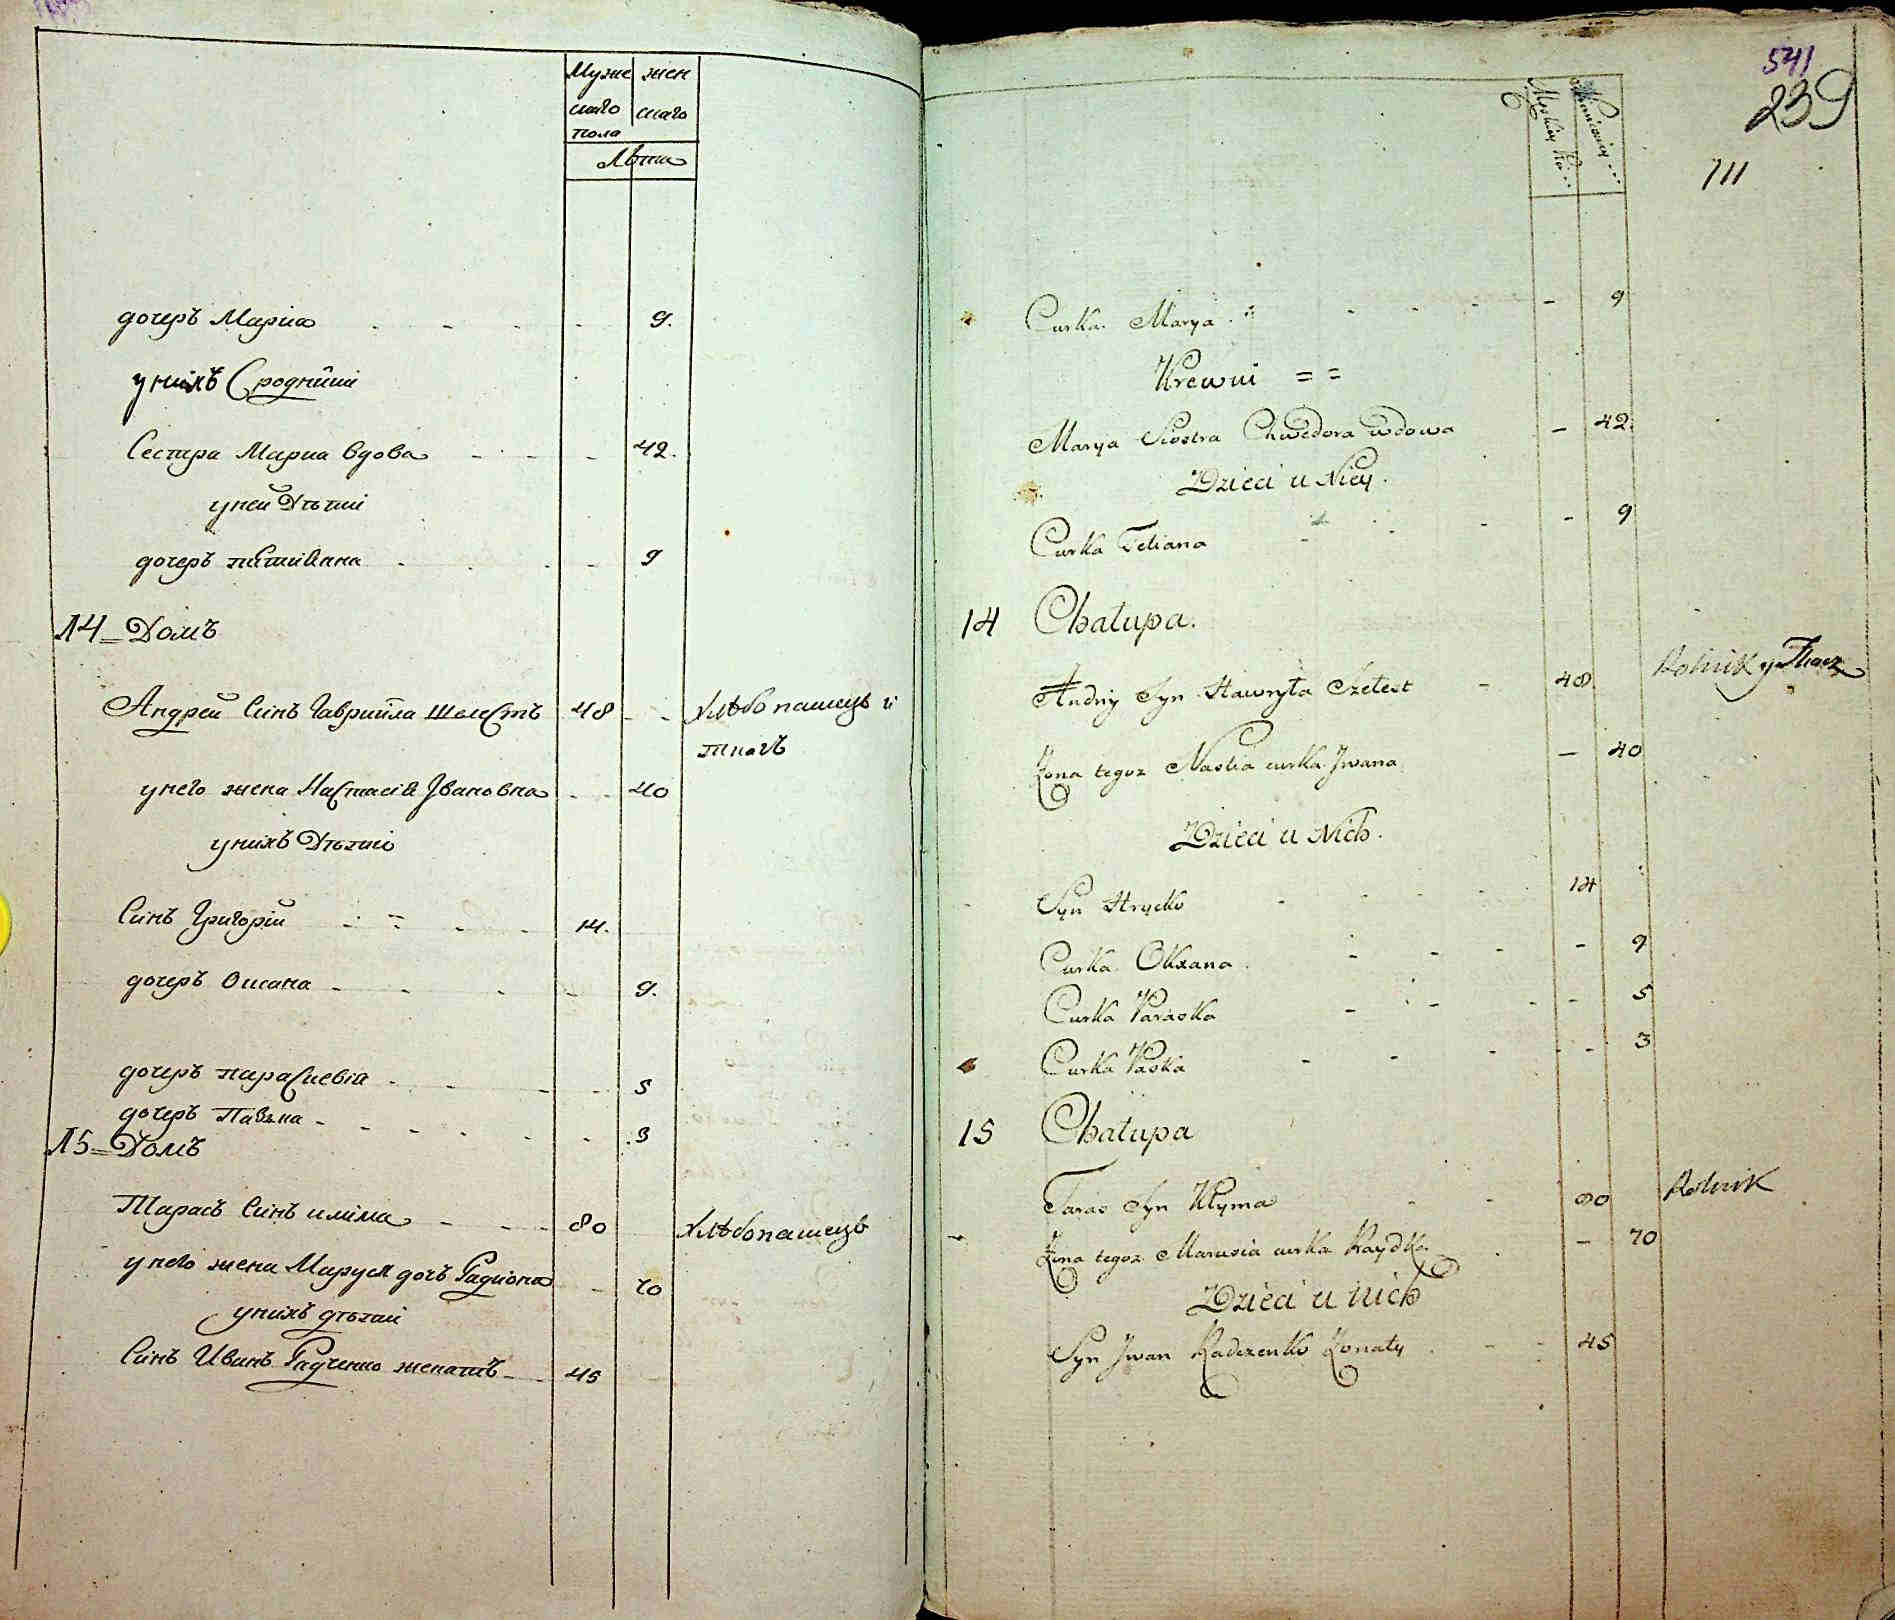 Муже жен
скаго скаго
пола
Лѣта
дочеръ Мариа 9.
унихъ Сродній
Сестра Мариа вдова 42.
уней Дѣтиі
дочеръ 9
14 Домъ
Андрей Синъ Гаврийла Шелестъ 48 Хлѣбопашецъ и
ткачъ
унего жена Настасія Івановна 40
унихъ Дѣтиі
Синъ Григорій 14.
дочеръ Оксана 9.
дочеръ параскевія 5
дочеръ Павзка 3
15 Домъ
Тарасъ Синъ клима 80 Хлѣбопашецъ
унего жена Маруся дочъ Радиона 70
унихъ дѣтиі
Синъ Иванъ Радченко женатъ 45
541
239
111
Curka Marya 9
Krewni
Marya Siostra Chwedora wdowa 42.
Dzieci u Niey.
Curka Tetiana 9
14 Chałupa.
Andriy Syn Hawryła Szelest 48 Rolnik y Tkacz
Żona tegoz Nastia curka Jwana 40
Dzieci u Nich.
Syn Hrycko 14
Curka Oksana 9
Curka Paraska 5
Curka Paska 3
15 Chałupa
Taras Syn Kłyma 80 Rolnik
Żona tegoz Marusia curka Raydka 70
Dzieci u nich
Syn Jwan Radczenko Żonaty 45